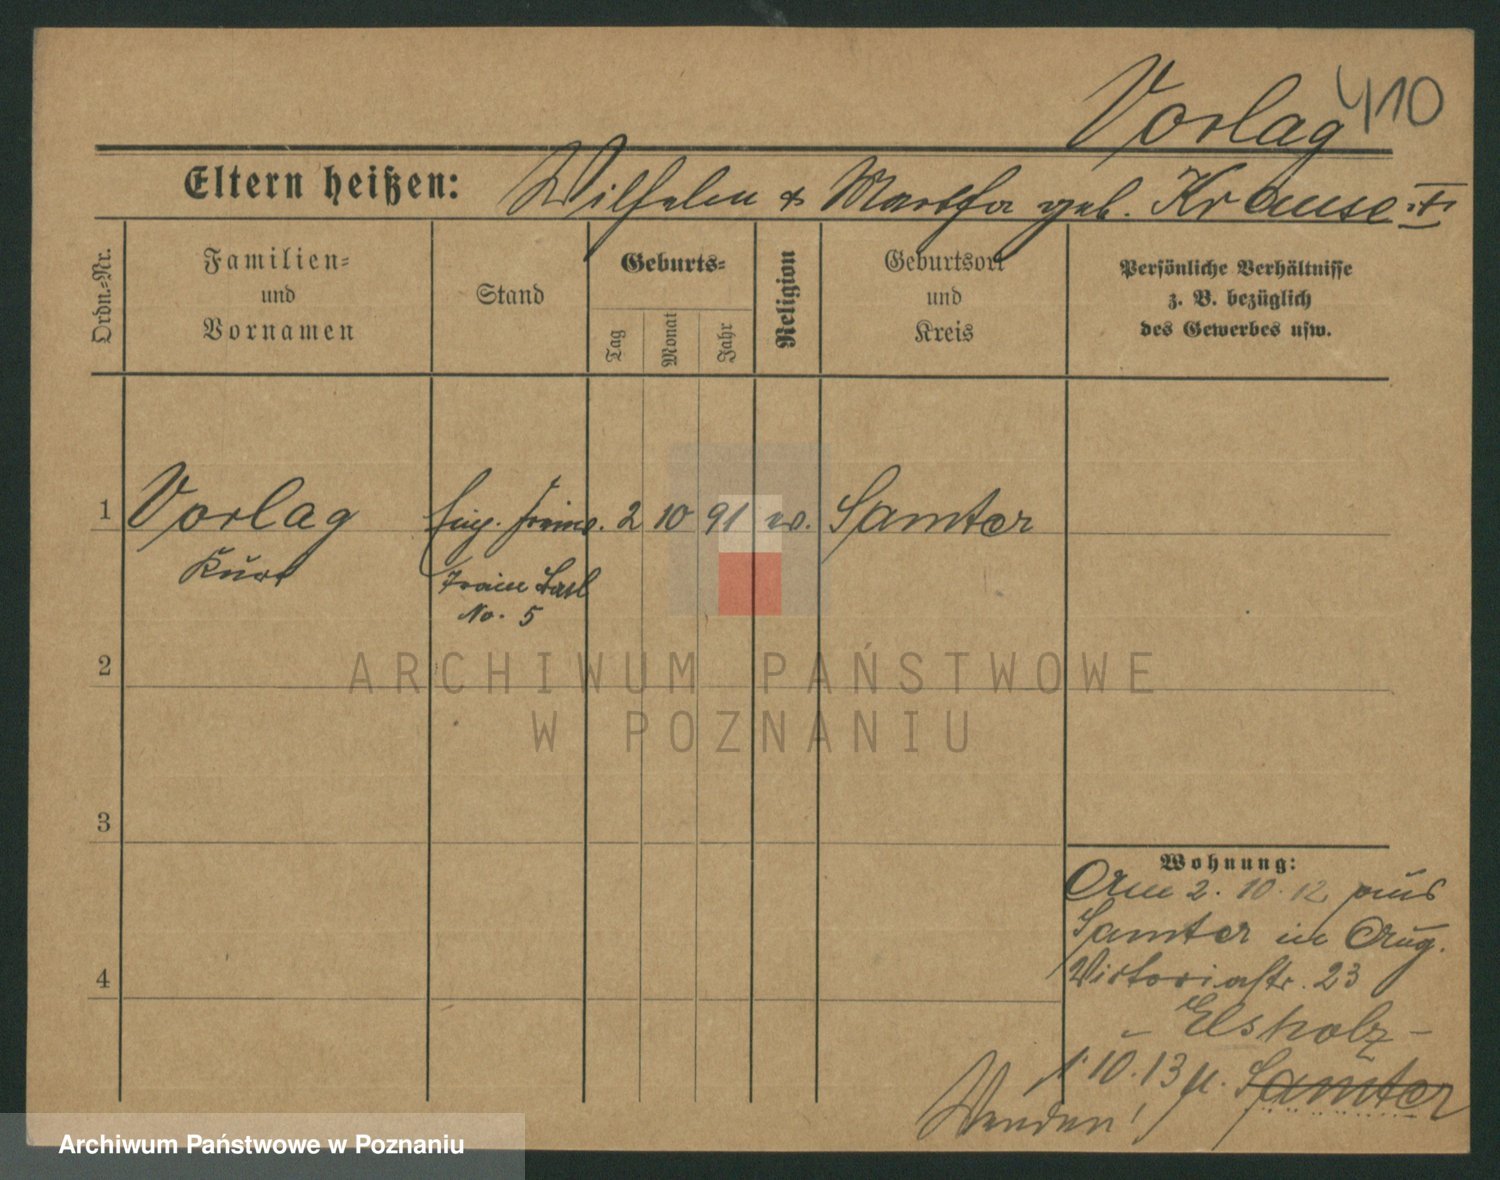 Vorlag
410
Eltern heißen: Wilhelm & Martha geb. Krause
Ordn.-Nr.
Familien-
und
Vornamen
Stand
Geburts-
Tag
Monat
Jahr
Religion
Geburtsort
und
Kreis
Persönliche Verhältnisse
z. B. bezüglich
des Gewerbes usw.
1 Vorlag Einj. Freiw. 2 10 91 ev. Samter
Kurt
Train Batl
No. 5
2
3
4
Wohnung:
Am 2. 10. 12 aus
Samter in Aug.
Viktoriastr. 23
- Elsholz -
1. 10. 13 n. Samter
Wenden!
ARCHIWUM PAŃSTWOWE
W POZNANIU
Archiwum Państwowe w Poznaniu